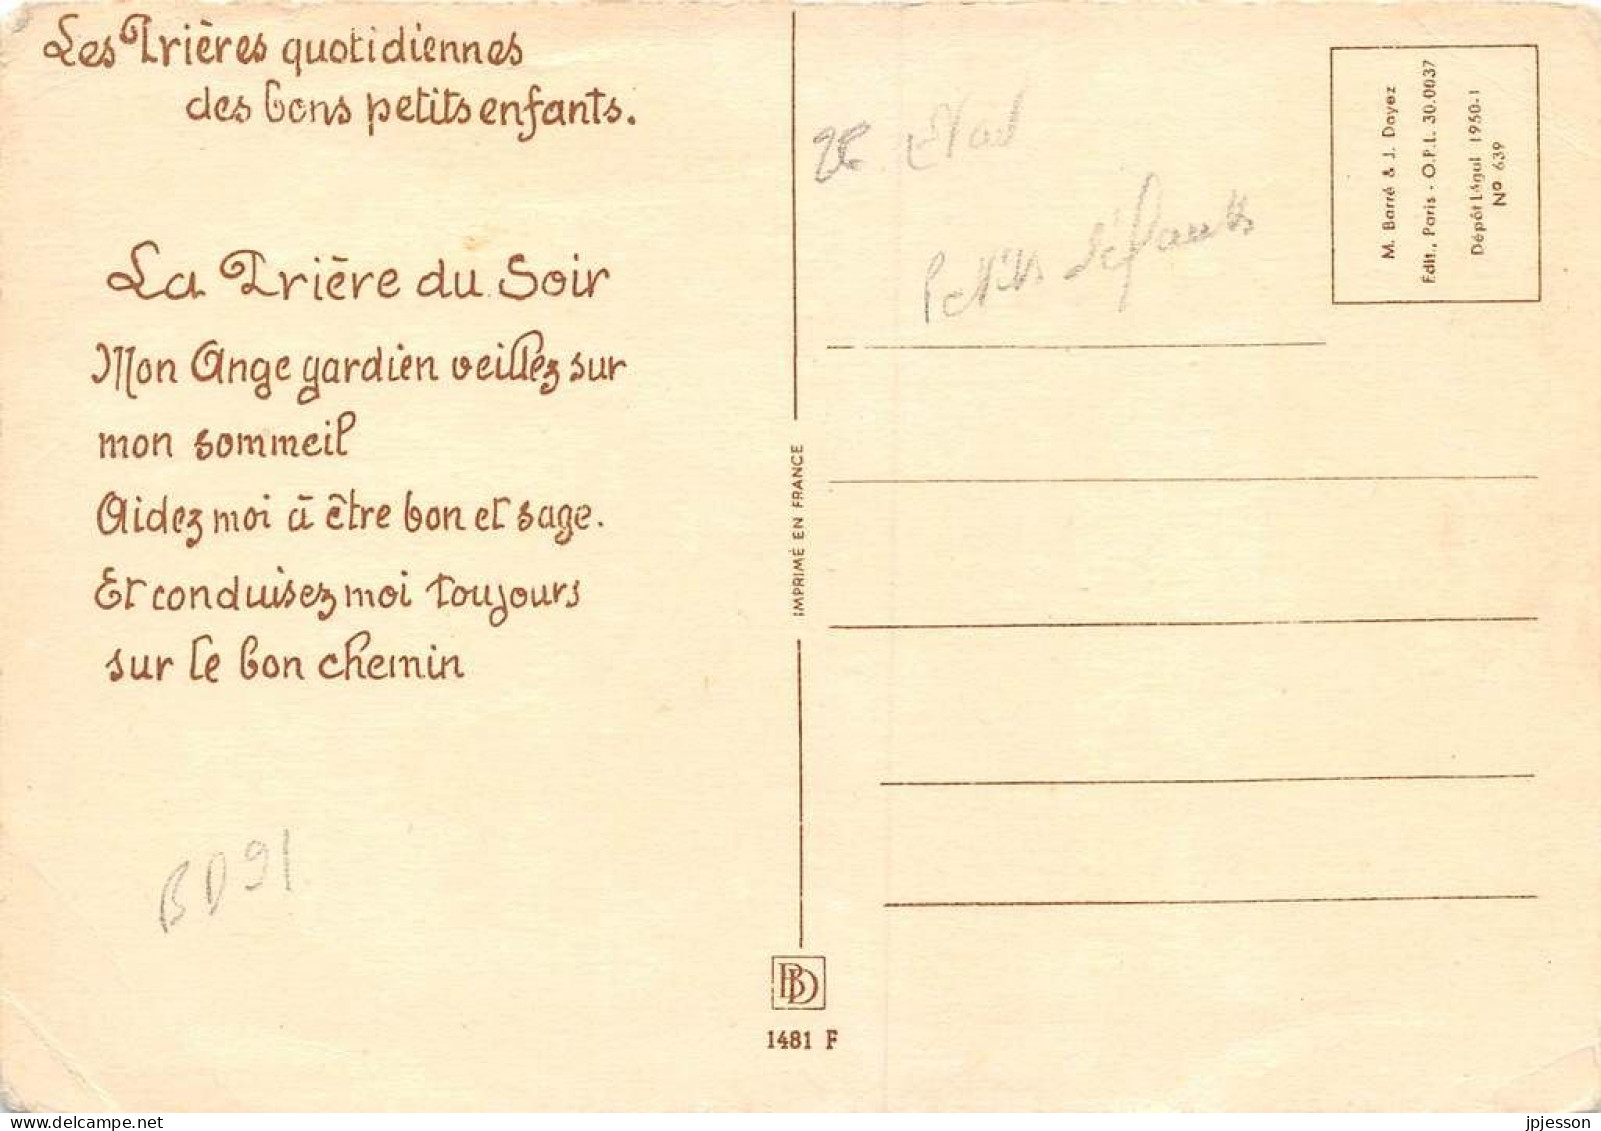 Les Prières quotidiennes
des bons petits enfants.
La Prière du Soir
Mon Ange gardien veillez sur
mon sommeil
Aidez moi à être bon et sage.
Et conduisez moi toujours
sur le bon chemin
BD91
IMPRIMÉ EN FRANCE
BD
1481 F
état
Petits défauts
M. Barré & J. Dayez
Edit., Paris - O.P.L. 30.0037
Dépôt Légal 1950-1
Nº 639
jpjesson